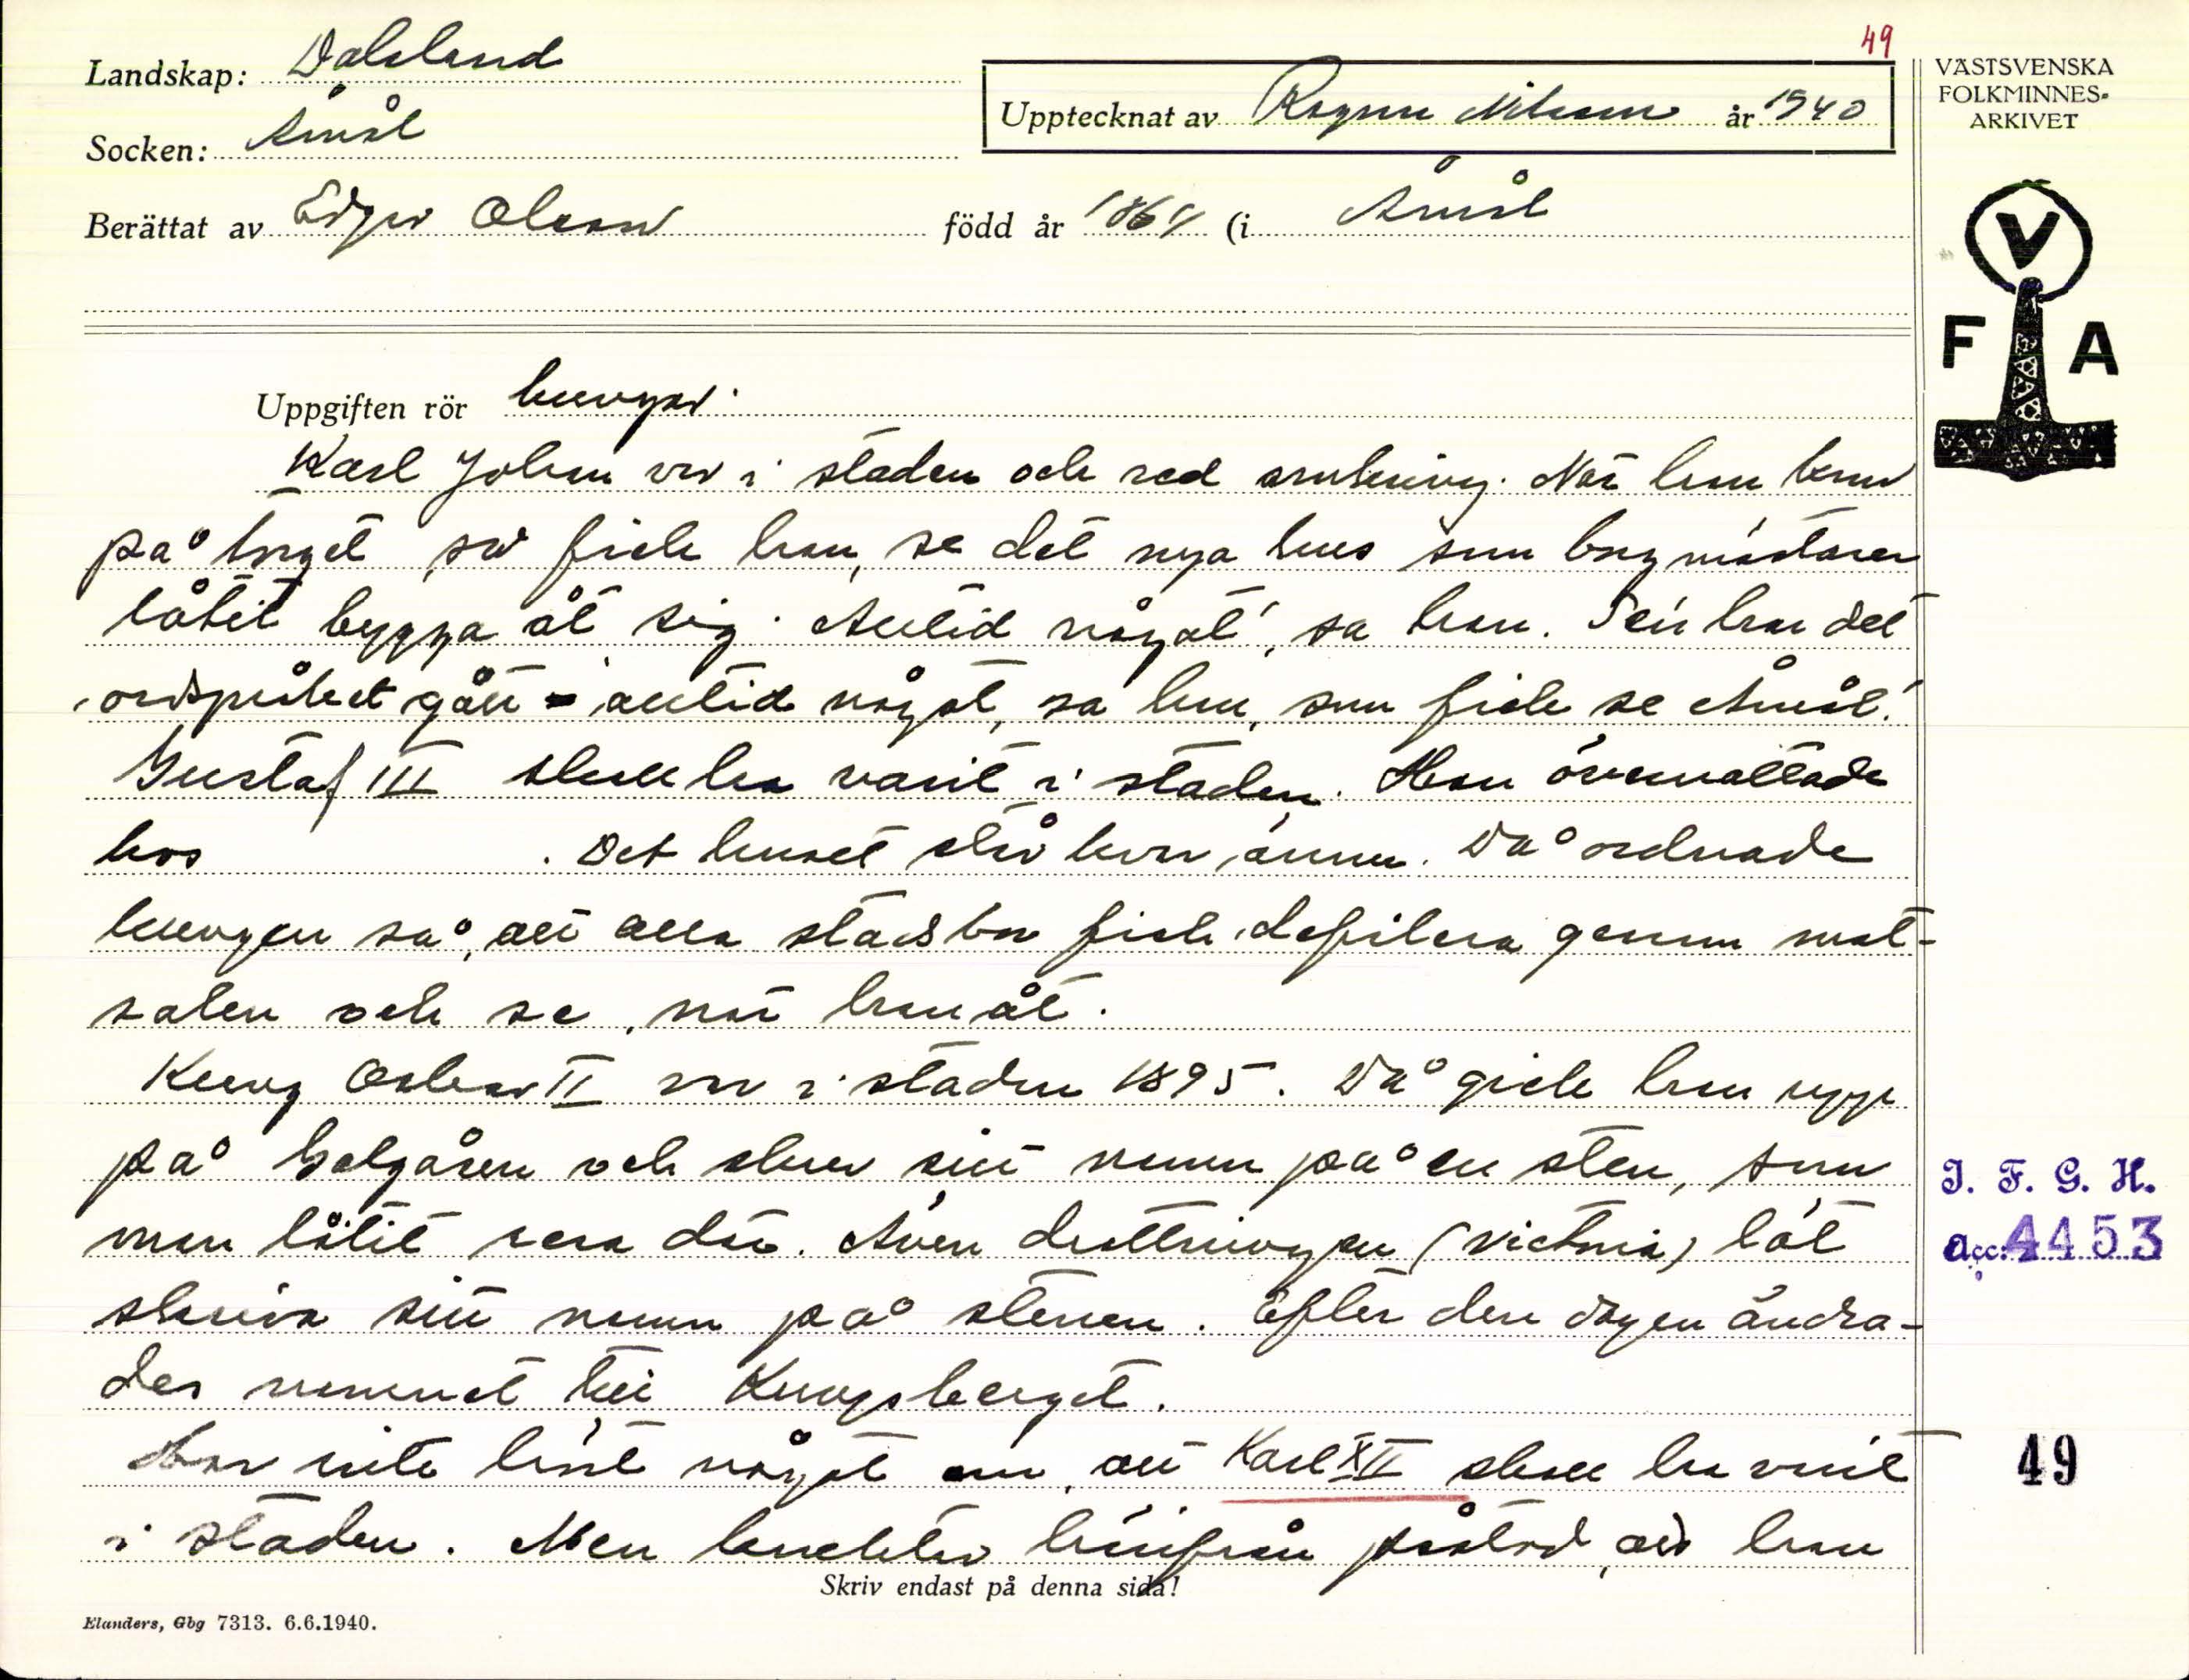 49
Landskap: Dalsland
VÄSTSVENSKA
FOLKMINNES-
ARKIVET
Upptecknat av Ragnar Nilsson år 1940
Socken: Åmål
Berättat av Edgar Olsson född år 1864 (i Åmål
V
F A
Uppgiften rör kungar.
Karl Johan var i staden och red omkring. När han kom
på torget, så fick han se det nya hus som borgmästaren
låtit bygga åt sig. Alltid något, sa han. Sen har det
ordspråket gått - alltid något, sa han, som fick se Åmål.
Gustaf III skall ha varit i staden. Han övernattade
hos . Det huset står kvar ännu. Då ordnade
kungen så, att alla stadsbor fick defilera genom mat-
salen och se, när han åt.
Kung Oskar II var i staden 1895. Då gick han upp
på Galgåsen och skrev sitt namn på en sten, som
man låtit resa där. Även drottningen (Victoria) lät
skriva sitt namn på stenen. Efter den dagen ändra-
des namnet till Kungsberget.
Har inte läst något om, att Karl XII skall ha varit
i staden. Men härifrån påstod, att han
Skriv endast på denna sida!
Elanders, Gbg 7313. 6.6.1940.
I. F. G. H.
acc: 4453
49